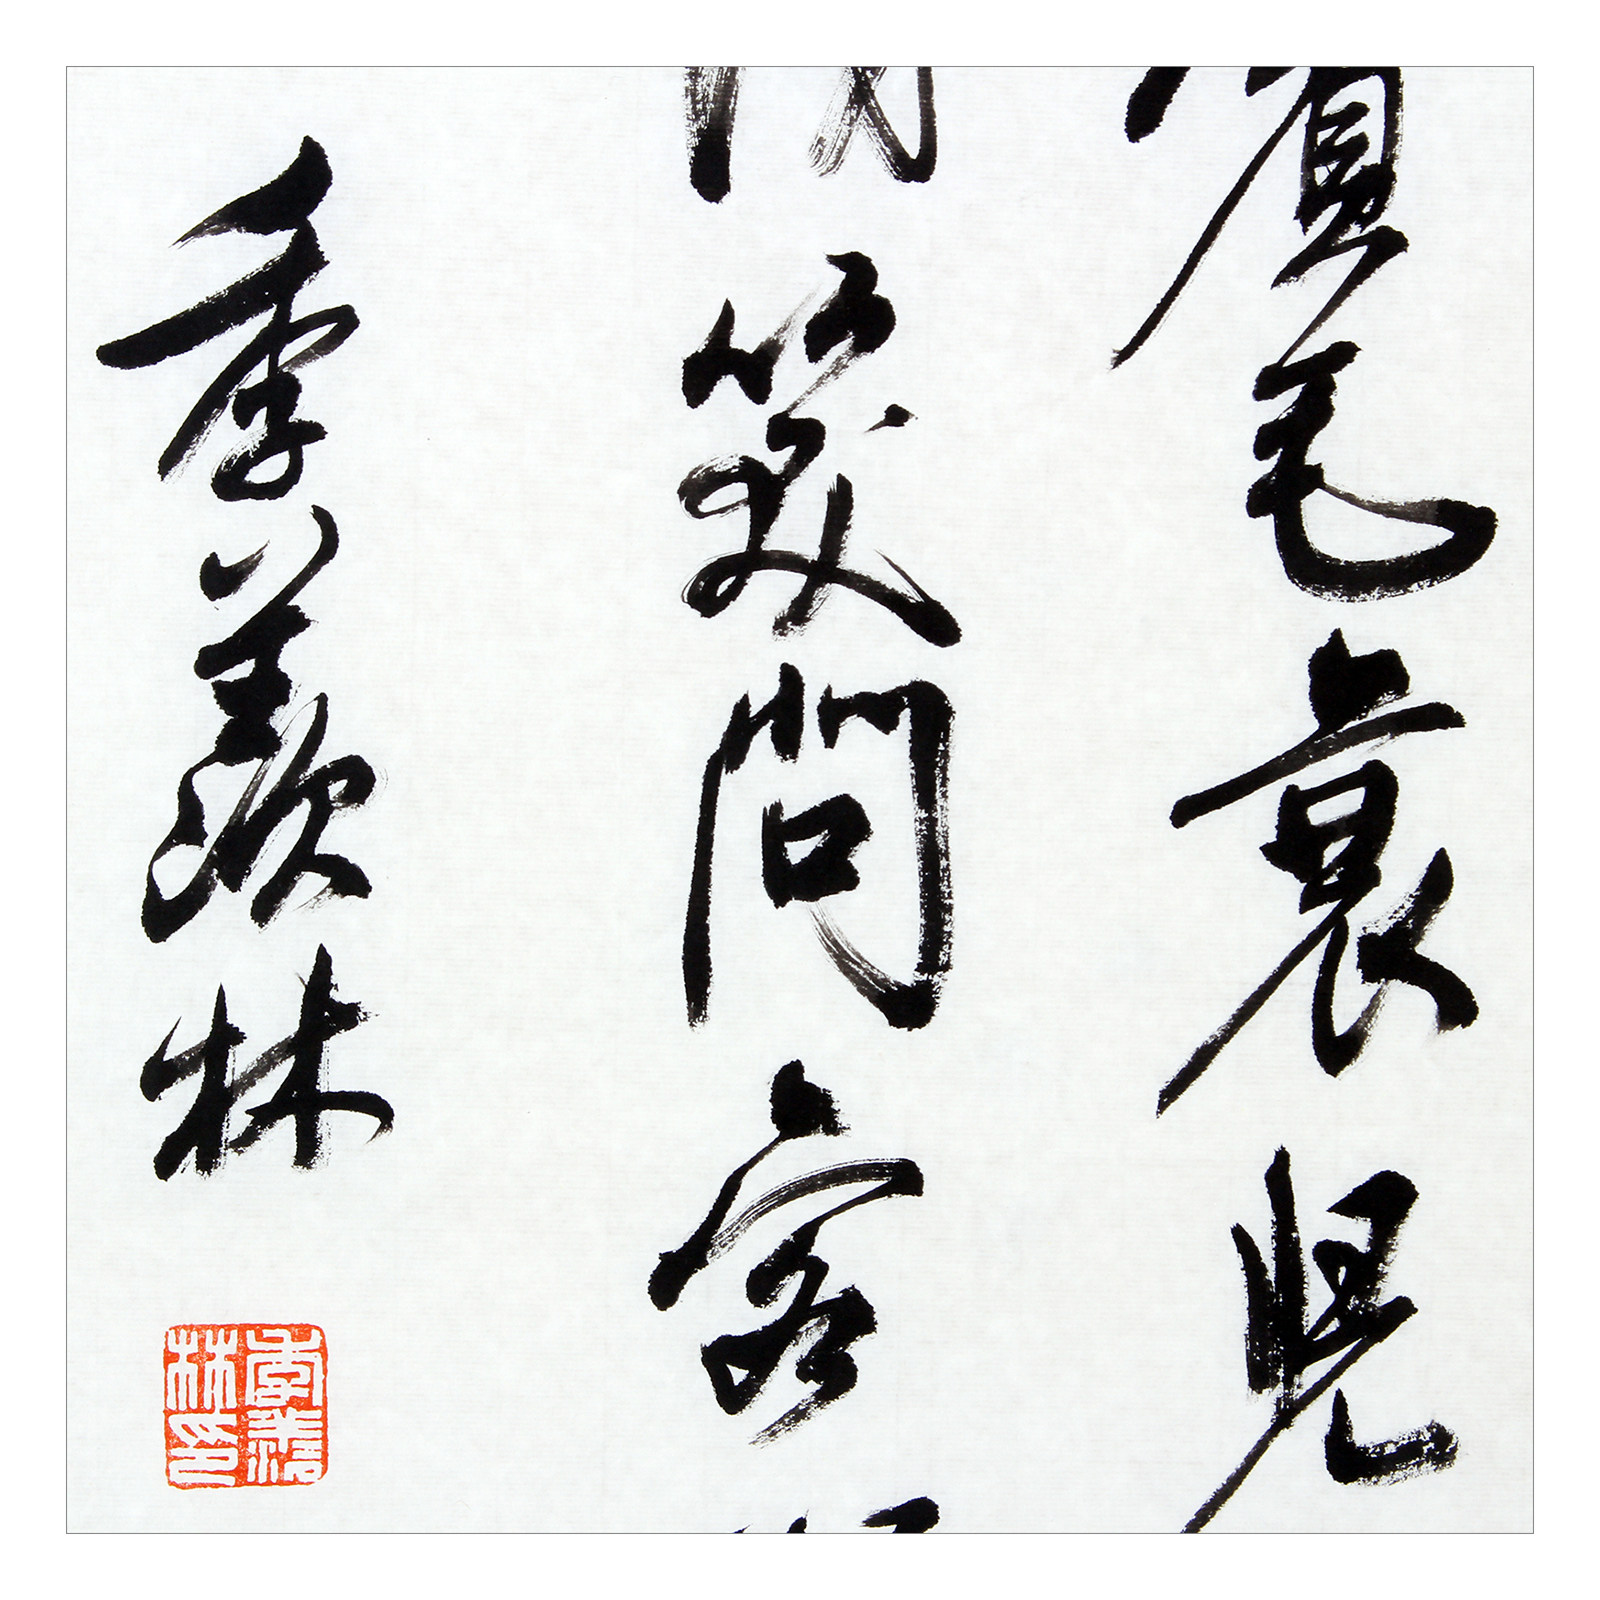 鬢毛衰児
笑問客
季羨林
季羨林印